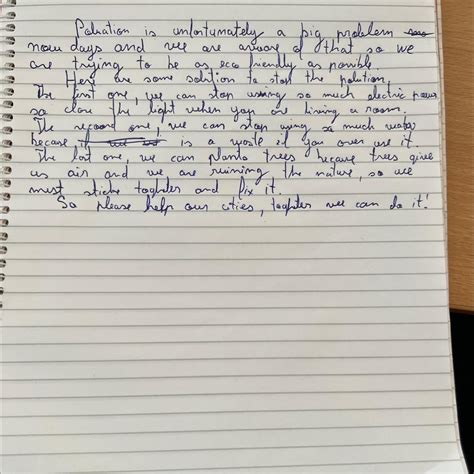 Poluation is unfortunately a big problem
now days and we are aware of that so we
are trying to be as eco friendly as posible.
Here are some solution to stop the polution,
The first one, we can stop using so much electric power
so close the light when you are living a room.
The second one, we can stop using so much water
becase it is a waste if you over use it.
The last one, we can planta trees becase trees give
us air and we are ruining the nature, so we
must sticke togheter and fix it.
So please help our cities, togheter we can do it!